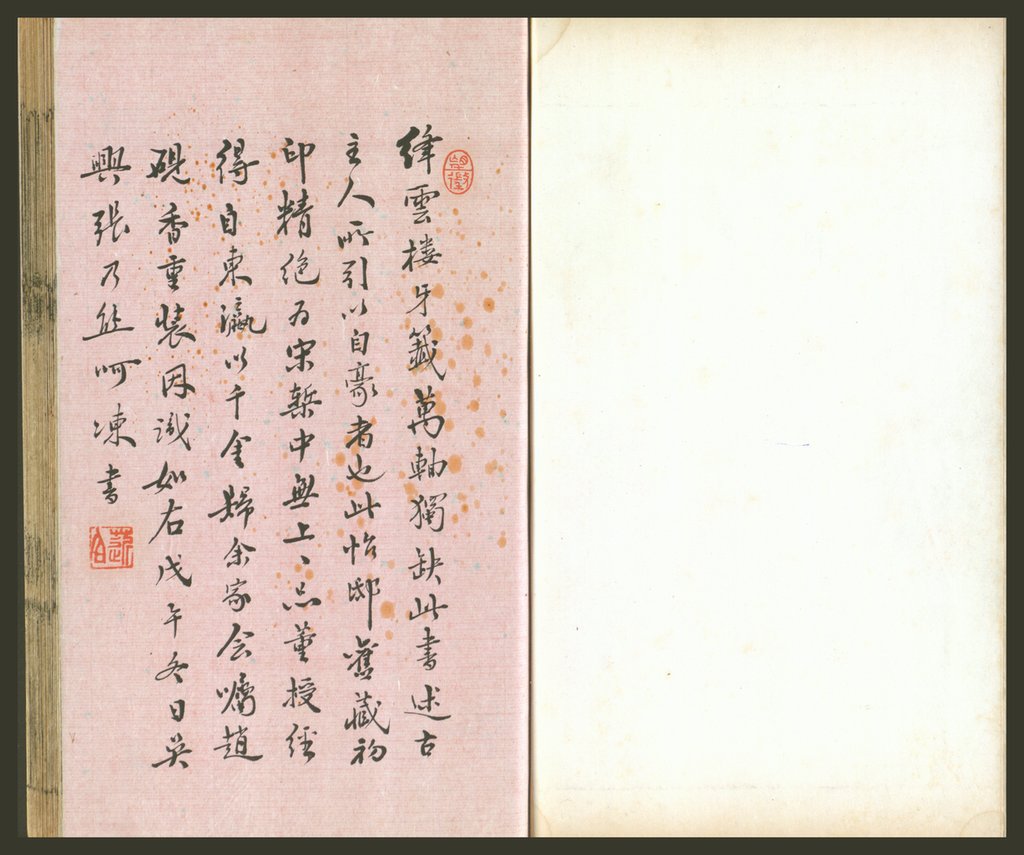 絳雲樓牙籤萬軸獨缺此書述古
主人所引以自豪者也此怡邸舊藏初
印精絕為宋槧中無上〻品董授經
得自東瀛以千金歸余家會囑趙
硯香重裝因識如右戊午冬日吳
興張乃熊呵凍書